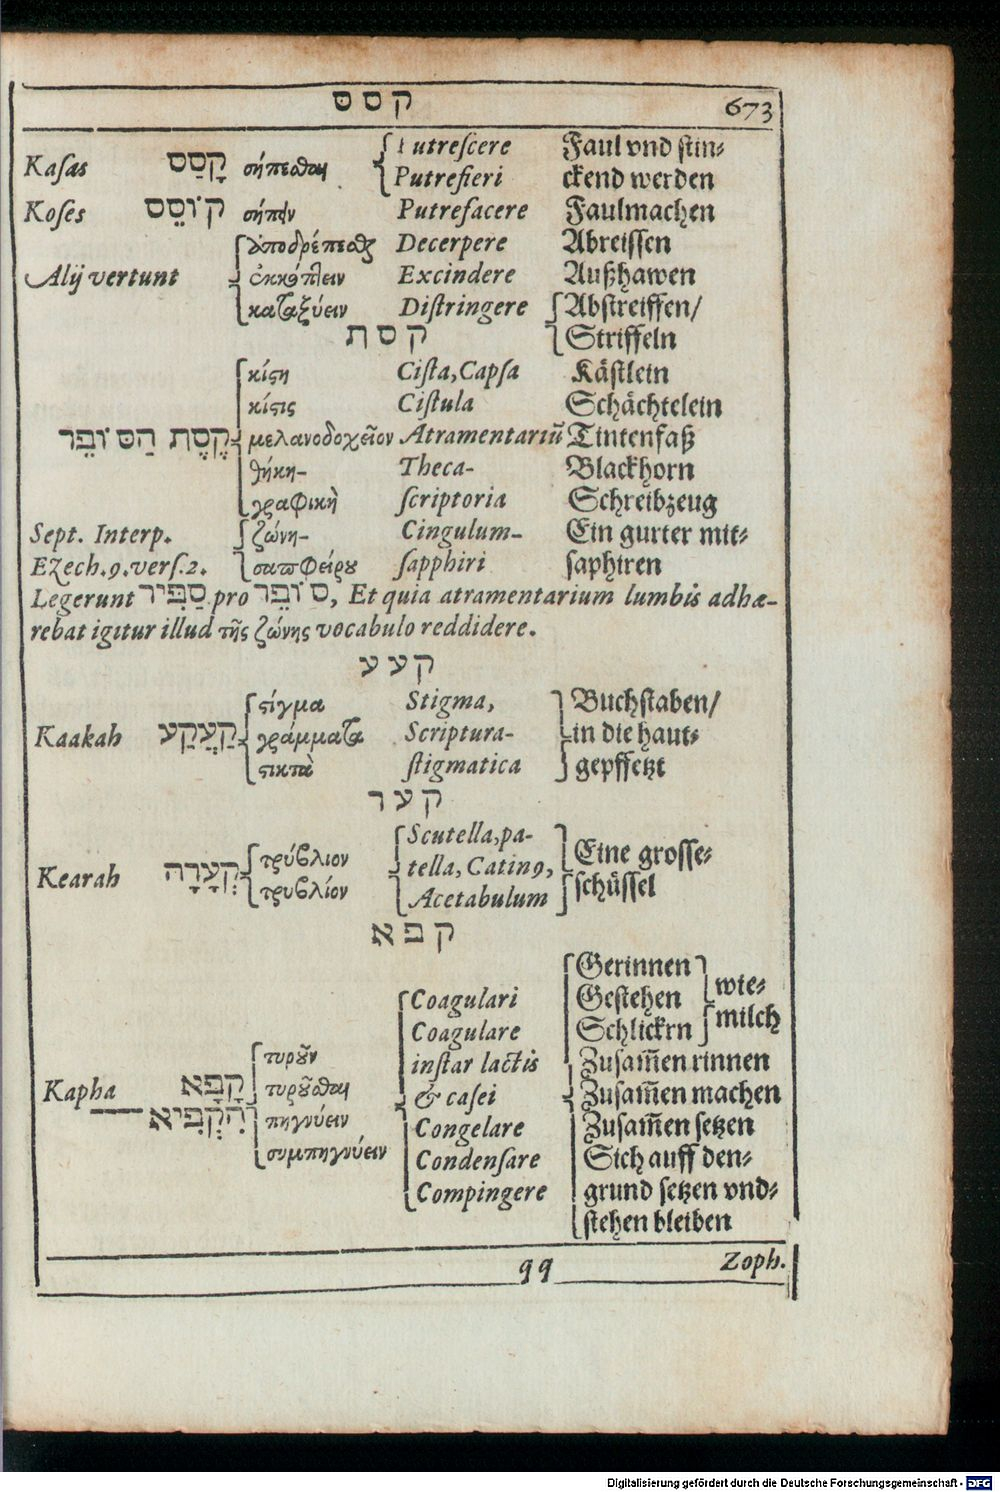 קסס 673
Kasas קָסַס σήπεσθαι Putrescere Faul vnd stin-
Putrefieri ckend werden
Koses קוֹסֵס σήπειν Putrefacere Faulmachen
ἀποδρέπεσθαι Decerpere Abreissen
Alij vertunt ἐκκόπτειν Excindere Außhawen
καταξύειν Distringere Abstreiffen/
קסת Striffeln
κίςη Cista, Capsa Kästlein
κίςις Cistula Schächtelein
קֶסֶת הַסּוֹפֵר μελανοδοχεῖον Atramentariũ Tintenfaß
θήκη- Theca- Blackhorn
γραφικὴ scriptoria Schreibzeug
Sept. Interp. ζώνη- Cingulum- Ein gurter mit-
Ezech. 9. vers. 2. σαπφείρου sapphiri saphiren
Legerunt סַפִּיר pro סוֹפֵר, Et quia atramentarium lumbis adhæ-
rebat igitur illud τῆς ζώνης vocabulo reddidere.
קעע
ςίγμα Stigma, Buchstaben/
Kaakah קַעֲקַע γράμματα Scriptura- in die haut-
ςικτὰ stigmatica gepffetzt
קער
Scutella, pa-
Kearah קְעָרָה τρύβλιον tella, Catinꝰ, Eine grosse-
τρυβλίον Acetabulum schüssel
קפא
Gerinnen wie-
Coagulari Gestehen
Coagulare Schlickrn milch
τυροῦν instar lactis Zusam̃en rinnen
Kapha קָפָא τυροῦσθαι & casei Zusam̃en machen
— הִקְפִּיא πηγνύειν Congelare Zusam̃en setzen
συμπηγνύειν Condensare Sich auff den-
Compingere grund setzen vnd-
stehen bleiben
qq Zoph.
Digitalisierung gefördert durch die Deutsche Forschungsgemeinschaft - DFG